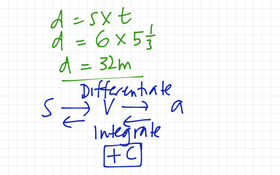 d = s x t
d = 6 x 5 1/3
d = 32m
Differentiate
S → V → a
← ←
Integrate
+ C